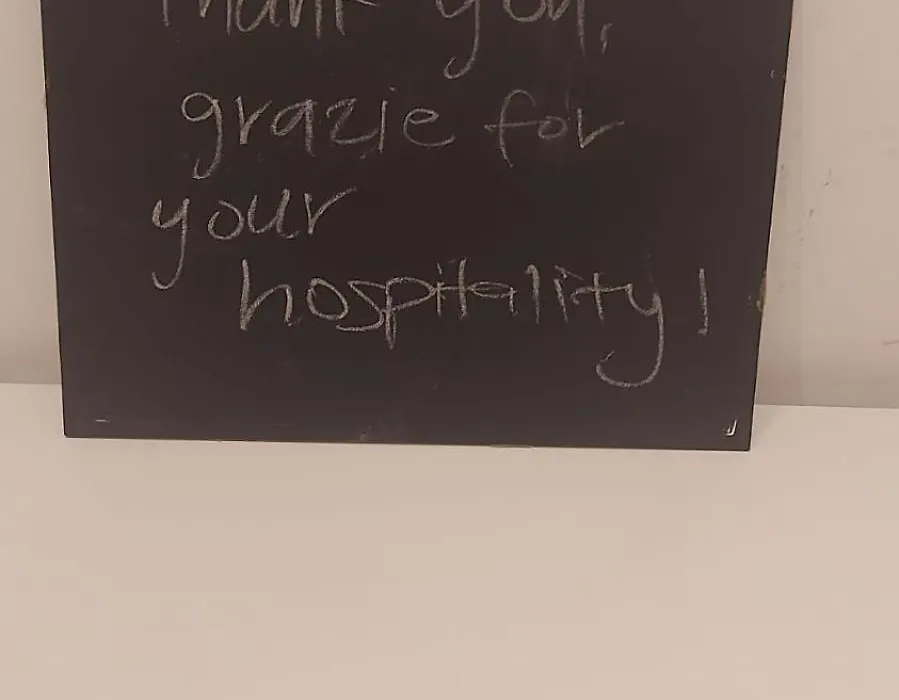 Thank you,
grazie for
your
hospitality!